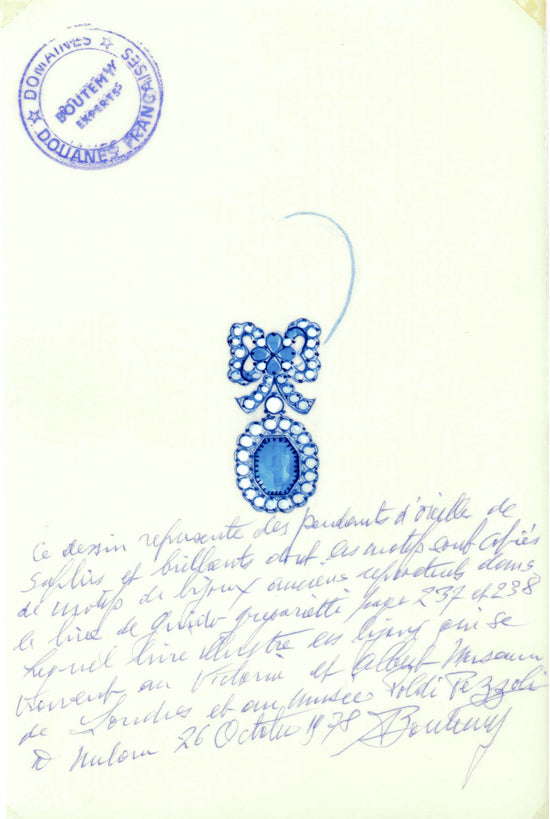 ☆ DOMAINES ☆
DOUANES FRANÇAISES
BOUTEMY
EXPERTS
Ce dessin represente des pendants d'oreille de
Saphirs et brillants dont les motifs sont copiés
de motifs de bijoux anciens reproduits dans
le livre de Guido gregorietti page 237 et 238
lequel livre illustre les bijoux qui se
trouvent au Victoria et Albert Museum
de Londres et au musée Poldi Pezzoli
A Milan 26 Octobre 1978 Boutemy